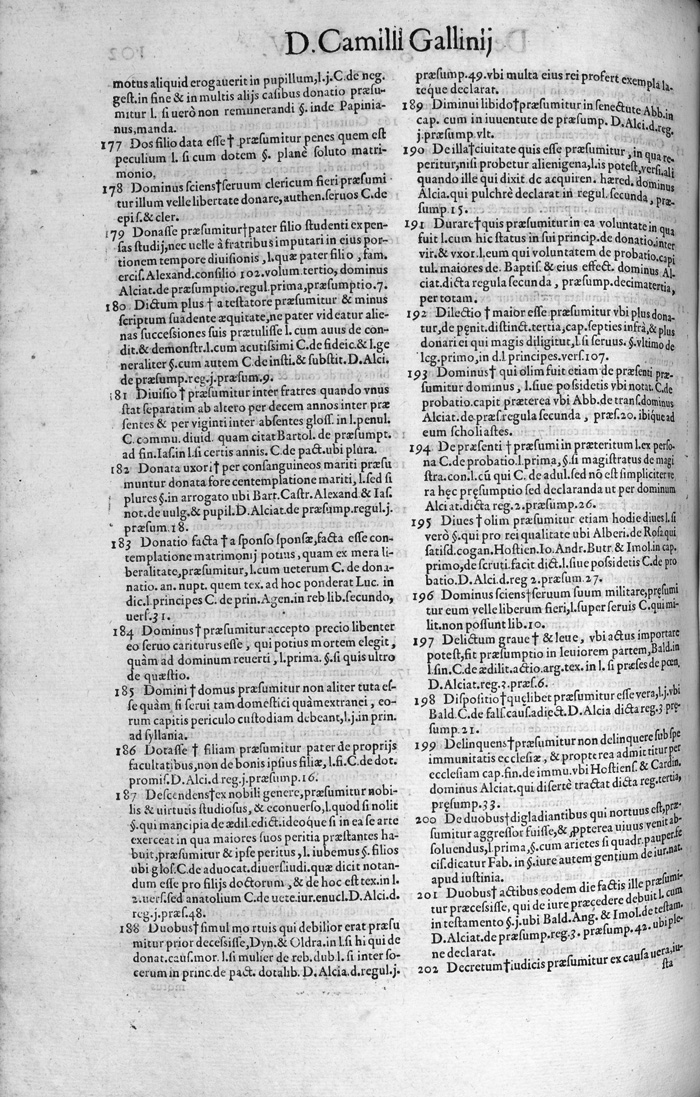 D. Camilli Gallinij
motus aliquid erogauerit in pupillum, l.j. C. de neg.
gest. in fine & in multis alijs casibus donatio præsu-
mitur l. si uerò non remunerandi §. inde Papinia-
nus, manda.
177 Dos filio data esse † præsumitur penes quem est
peculium l. si cum dotem §. planè soluto matri-
monio.
178 Dominus sciens † seruum clericum fieri præsumi
tur illum velle libertate donare, authen. seruos C. de
epis. & cler.
179 Donasse præsumitur † pater filio studenti expen-
sas studij, nec uelle à fratribus imputari in eius por-
tionem tempore diuisionis, l. quæ pater filio, fam.
ercis. Alexand. consilio 102. volum. tertio, dominus
Alciat. de præsumptio. regul. prima, præsumptio. 7.
180 Dictum plus † a testatore præsumitur & minus
scriptum suadente æquitate, ne pater videatur alie-
nas successiones suis prætulisse l. cum auus de con-
dit. & demonstr. l. cum acutissimi C. de fideic. & l. ge
neraliter §. cum autem C. de insti. & substit. D. Alci.
de præsump. reg. j. præsum. 9.
181 Diuisio † præsumitur inter fratres quando vnus
stat separatim ab altero per decem annos inter præ
sentes & per viginti inter absentes gloss. in l. penul.
C. commu. diuid. quam citat Bartol. de præsumpt.
ad fin. Ias. in l. si certis annis. C. de pact. ubi plura.
182 Donata uxori † per consanguineos mariti præsu
muntur donata fore contemplatione mariti, l. sed si
plures §. in arrogato ubi Bart. Castr. Alexand. & Ias.
not. de uulg. & pupil. D. Alciat. de præsump. regul. j.
præsum. 18.
183 Donatio facta † a sponso sponsæ, facta esse con-
templatione matrimonij potius, quam ex mera li-
beralitate, præsumitur, l. cum ueterum C. de dona-
natio. an. nupt. quem tex. ad hoc ponderat Luc. in
dic. l principes C. de prin. Agen. in reb lib. secundo,
uers. 31.
184 Dominus † præsumitur accepto precio libenter
eo seruo cariturus esse, qui potius mortem elegit,
quàm ad dominum reuerti, l. prima. §. si quis ultro
de quæstio.
185 Domini † domus præsumitur non aliter tuta es-
se quàm si serui tam domestici quàm extranei, eo-
rum capitis periculo custodiam debeant, l. j. in prin.
ad syllania.
186 Dotasse † filiam præsumitur pater de proprijs
facultatibus, non de bonis ipsius filiæ, l. fi. C. de dot.
promis. D. Alci. d reg. j. præsump. 16.
187 Descendens † ex nobili genere, præsumitur nobi-
lis & uirtutis studiosus, & econuerso, l. quod si nolit
§. qui mancipia de ædil. edict. ideoque si in ea se arte
exerceat in qua maiores suos peritia præstantes ha-
buit, præsumitur & ipse peritus, l. iubemus §. filios
ubi glos. C. de aduocat. diuers. iudi. quæ dicit notan-
dum esse pro filijs doctorum, & de hoc est tex. in l.
2. uers. sed anatolium C. de uete. iur. enucl. D. Alci. d.
reg. j. præs. 48.
188 Duobus † simul mortuis qui debilior erat præsu
mitur prior decessisse, Dyn. & Oldra. in l. si hi qui de
donat. caus. mor. l. si mulier de reb. dub. l. si inter so-
cerum in princ. de pact. dotalib. D. Alcia. d. regul. j.
præsump. 49. vbi multa eius rei profert exempla la-
teque declarat.
189 Diminui libido † præsumitur in senectute Abb. in
cap. cum in iuuentute de præsump. D. Alci. d. reg.
j. præsump. vlt.
190 De illa † ciuitate quis esse præsumitur, in qua re
peritur, nisi probetur alienigena, l. is potest, vers. ali
quando ille qui dixit de acquiren. hæred. dominus
Alcia. qui pulchrè declarat in regul. secunda, præ-
sump. 15.
191 Durare † quis præsumitur in ea voluntate in qua
fuit l. cum hic status in sui princip. de donatio. inter
vir. & vxor. l. eum qui voluntatem de probatio. capi
tul. maiores de. Baptis. & eius effect. dominus Al-
ciat. dicta regula secunda, præsump. decimatertia,
per totam.
192 Dilectio † maior esse præsumitur vbi plus dona-
tur, de pęnit. distinct. tertia, cap. septies infrà, & plus
donari ei qui magis diligitur, l. si seruus. §. vltimo de
leg. primo, in d. l principes. vers. 107.
193 Dominus † qui olim fuit etiam de præsenti præ-
sumitur dominus, l. siue possidetis vbi notat. C. de
probatio. capit præterea vbi Abb. de trans. dominus
Alciat. de præs. regula secunda, præs. 20. ibique ad
eum scholiastes.
194 De præsenti † præsumi in præteritum l. ex perso-
na C. de probatio. l. prima, §. si magistratus de magi
stra. con. l. cū qui C. de adul. sed nō est simpliciter ve
ra hęc pręsumptio sed declaranda ut per dominum
Alciat. dicta reg. 2. præsump. 26.
195 Diues † olim præsumitur etiam hodie diues l. si
verò §. qui pro rei qualitate ubi Alberi. de Rosa qui
satisd. cogan. Hostien. Io. Andr. Butr. & Imol. in cap.
primo, de scruti. facit dict. l. siue possidetis C. de pro
batio. D. Alci. d reg 2. præsum. 27.
196 Dominus sciens † seruum suum militare, pręsumi
tur eum velle liberum fieri, l. super seruis C. qui mi-
lit. non possunt lib. 10.
197 Delictum graue † & leue, vbi actus importare
potest, fit præsumptio in leuiorem partem, Bald. in
l. fin. C. de ædilit. actio. arg. tex. in l. si præses de pœn.
D. Alciat. reg. 3. præs. 6.
198 Dispositio † quęlibet præsumitur esse vera, l. j. vbi
Bald. C. de fals. caus. adiect. D. Alcia dicta reg. 3 pre-
sump. 21.
199 Delinquens † præsumitur non delinquere sub spe
immunitatis ecclesiæ, & propterea admittitur per
ecclesiam cap. fin. de immu. vbi Hostiens. & Cardin.
dominus Alciat. qui disertè tractat dicta reg. tertia,
pręsump. 33.
200 De duobus † digladiantibus qui mortuus est, præ-
sumitur aggressor fuisse, & ꝓpterea uiuus venit ab-
soluendus, l. prima, §. cum arietes si quadr. pauper. fe
cis. dicatur Fab. in §. iure autem gentium de iur. nat.
apud iustinia.
201 Duobus † actibus eodem die factis ille præsumi-
tur præcessisse, qui de iure præcedere debuit l. cum
in testamento §. j. ubi Bald. Ang. & Imol. de testam.
D. Alciat. de præsump. reg. 3. præsump. 42. ubi ple-
ne declarat.
202 Decretum † iudicis præsumitur ex causa uera, iu-
sta